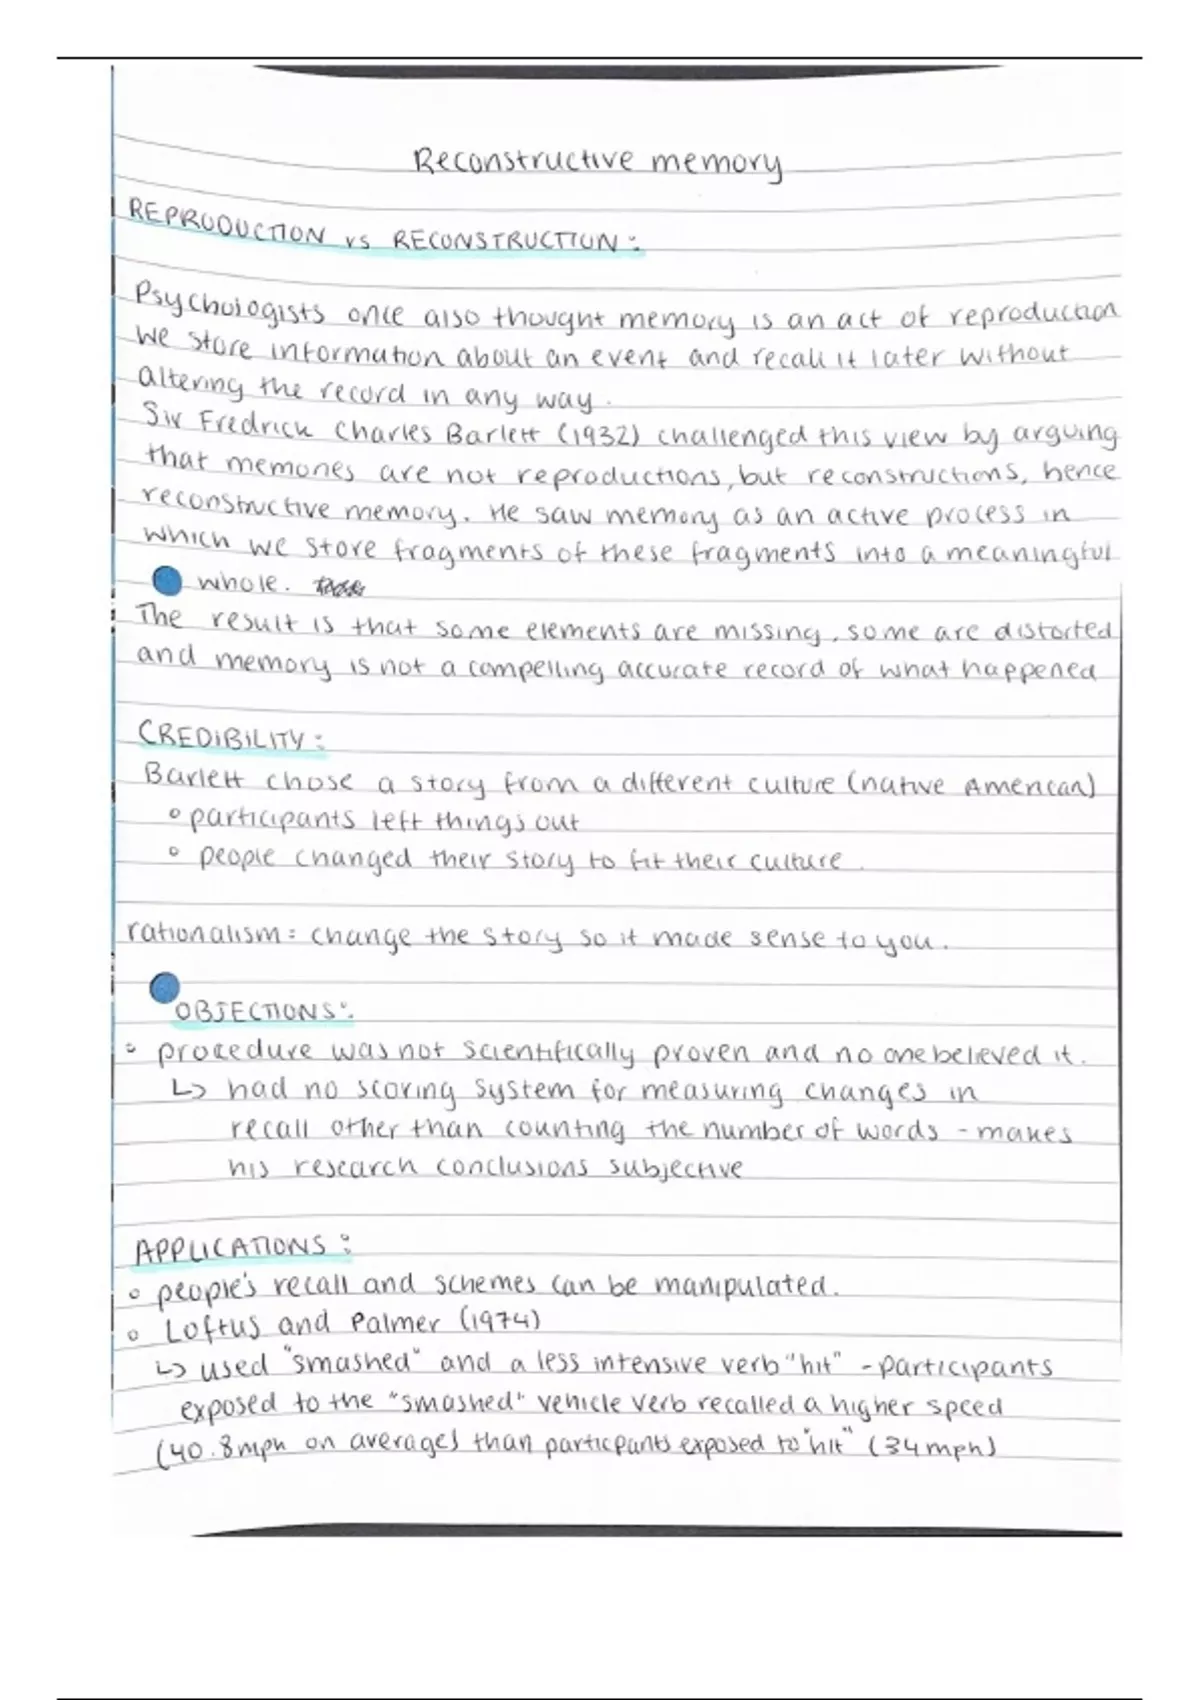 Reconstructive memory
REPRODUCTION vs RECONSTRUCTION:
Psychologists once also thought memory is an act of reproduction
we store information about an event and recall it later without
altering the record in any way.
Sir Fredrick Charles Barlett (1932) challenged this view by arguing
that memories are not reproductions, but reconstructions, hence
reconstructive memory. He saw memory as an active process in
which we store fragments of these fragments into a meaningful
whole.
The result is that some elements are missing, some are distorted
and memory is not a compelling accurate record of what happened
CREDIBILITY:
Barlett chose a story from a different culture (native American)
° participants left things out
° people changed their story to fit their culture.
rationalism: change the story so it made sense to you.
OBJECTIONS:
° procedure was not scientifically proven and no one believed it.
↳ had no scoring system for measuring changes in
recall other than counting the number of words - makes
his research conclusions subjective
APPLICATIONS:
° people's recall and schemes can be manipulated.
° Loftus and Palmer (1974)
↳ used "smashed" and a less intensive verb "hit" - participants
exposed to the "smashed" vehicle verb recalled a higher speed
(40.8mph on average) than particpants exposed to "hit" (34mph)